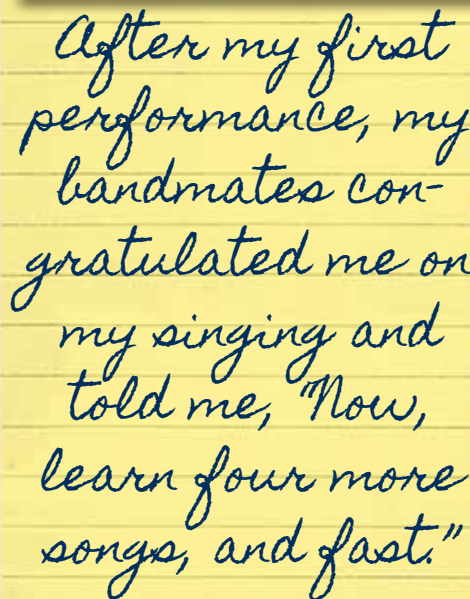 After my first
performance, my
bandmates con-
gratulated me on
my singing and
told me, "Now,
learn four more
songs, and fast."